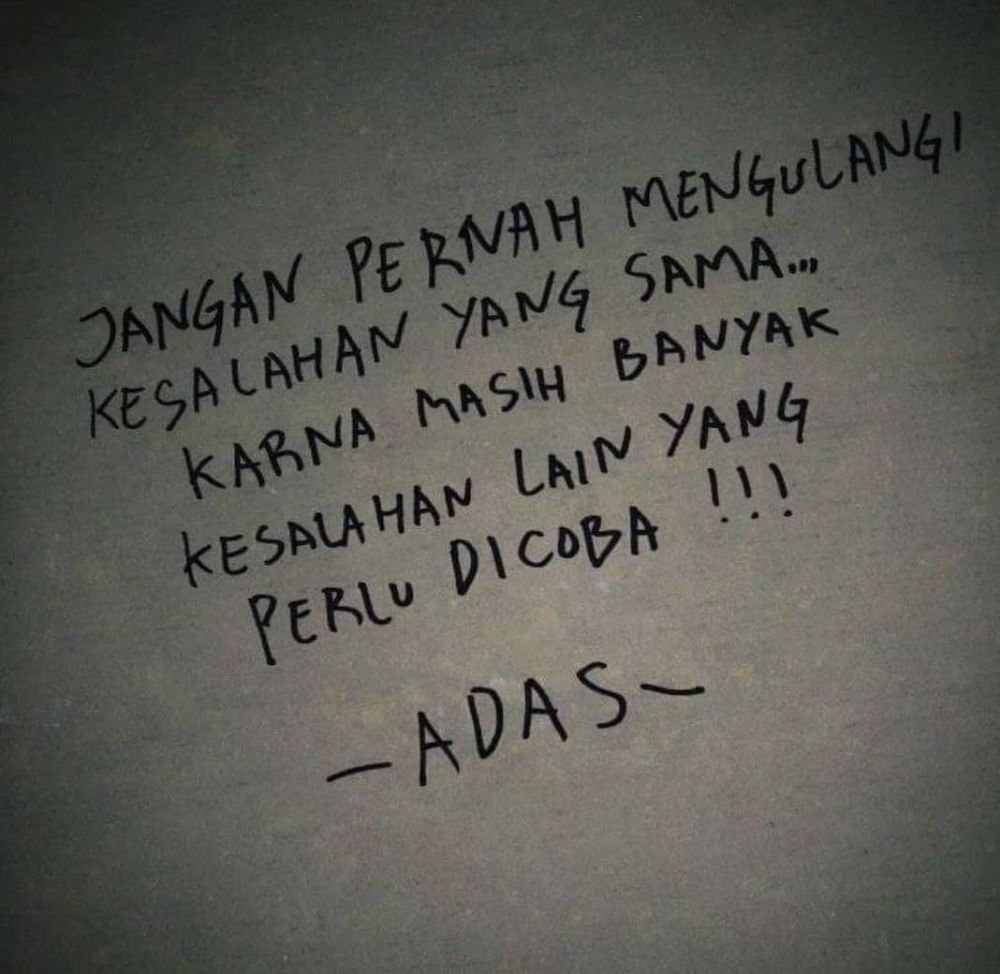 JANGAN PERNAH MENGULANGI
KESALAHAN YANG SAMA...
KARNA MASIH BANYAK
KESALAHAN LAIN YANG
PERLU DICOBA !!!
—ADAS—